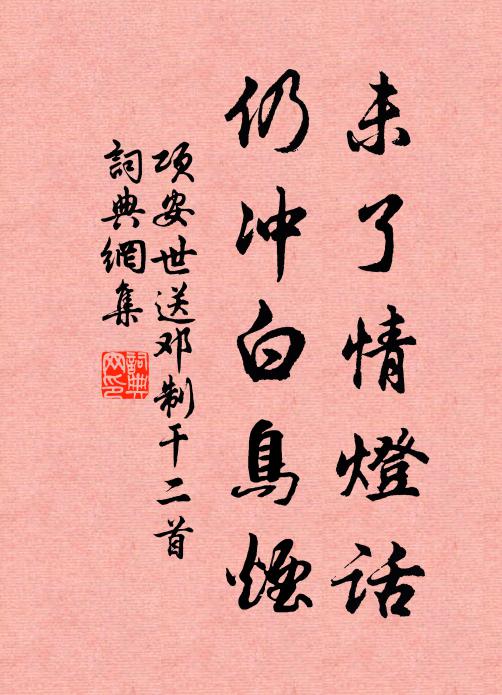 未了情燈話
仍冲白鳥煙
项安世送邓制干二首
詞典網集
詞典網印